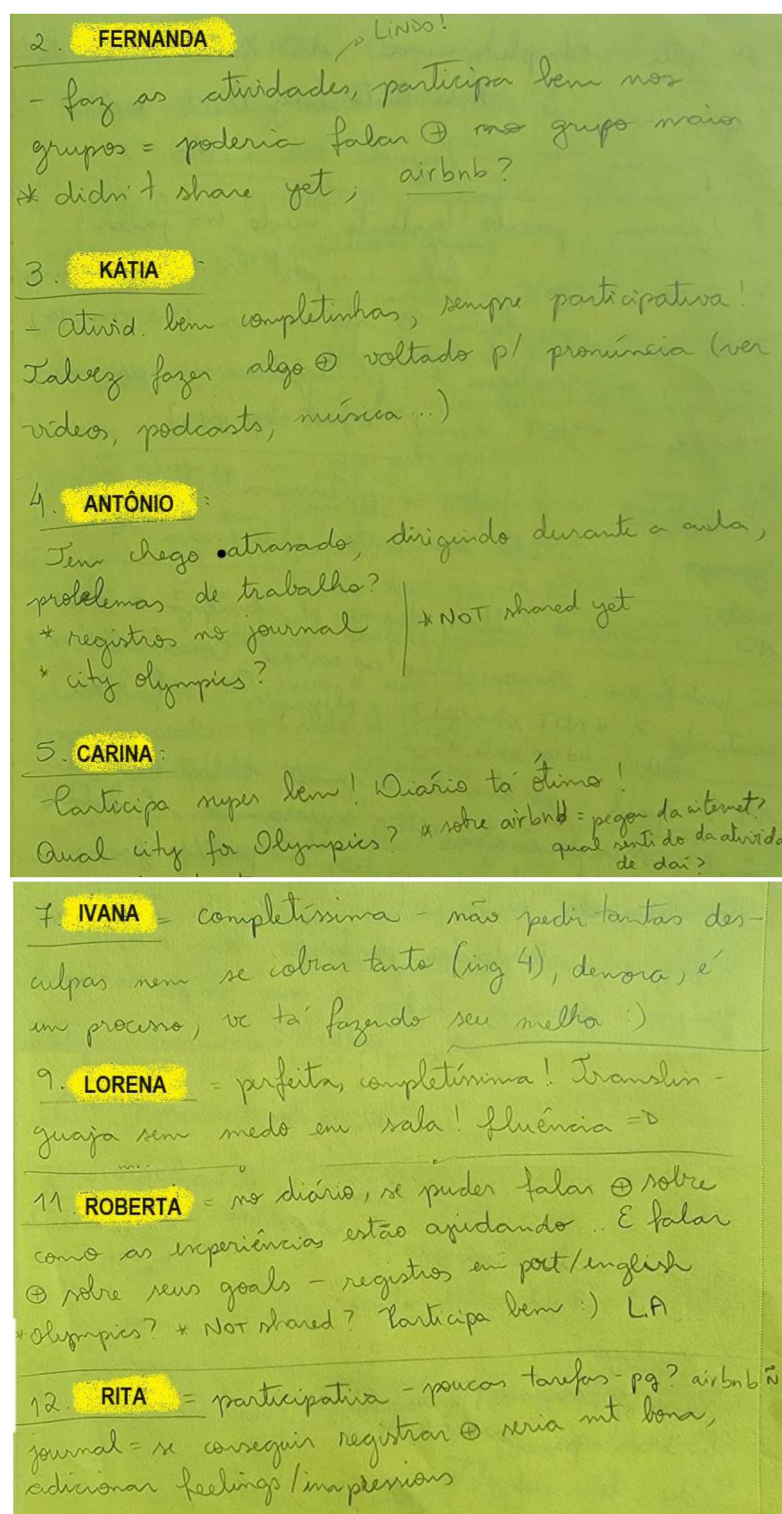 2. FERNANDA → LINDO!
- faz as atividades, participa bem nos
grupos = poderia falar ⊕ no grupo maior
* didn't share yet; airbnb?
3. KÁTIA :
- ativid. bem completinhas, sempre participativa!
Talvez fazer algo ⊕ voltado p/ pronúncia (ver
vídeos, podcasts, música...)
4. ANTÔNIO :
Tem chego atrasado, dirigindo durante a aula,
problemas de trabalho?
* registros no journal | * NOT shared yet
* city olympics?
5. CARINA :
Participa super bem! Diário tá ótimo!
Qual city for Olympics? * sobre airbnb = pegou da internet?
qual sentido da ativida
de daí?
7. IVANA = completíssima - não pedir tantas des-
culpas nem se cobrar tanto (ing 4), demora, é
um processo, vc tá fazendo seu melhor :)
9. LORENA = perfeita, completíssima! Translin-
guaja sem medo em sala! fluência =D
11. ROBERTA = no diário, se puder falar ⊕ sobre
como as experiências estão ajudando... E falar
⊕ sobre seus goals - registros em port/english
* Olympics? * NOT shared? Participa bem :) L.A
12. RITA = participativa - poucas tarefas - pg? airbnb ñ
journal = se conseguir registrar ⊕ seria mt bom,
adicionar feelings/impressions